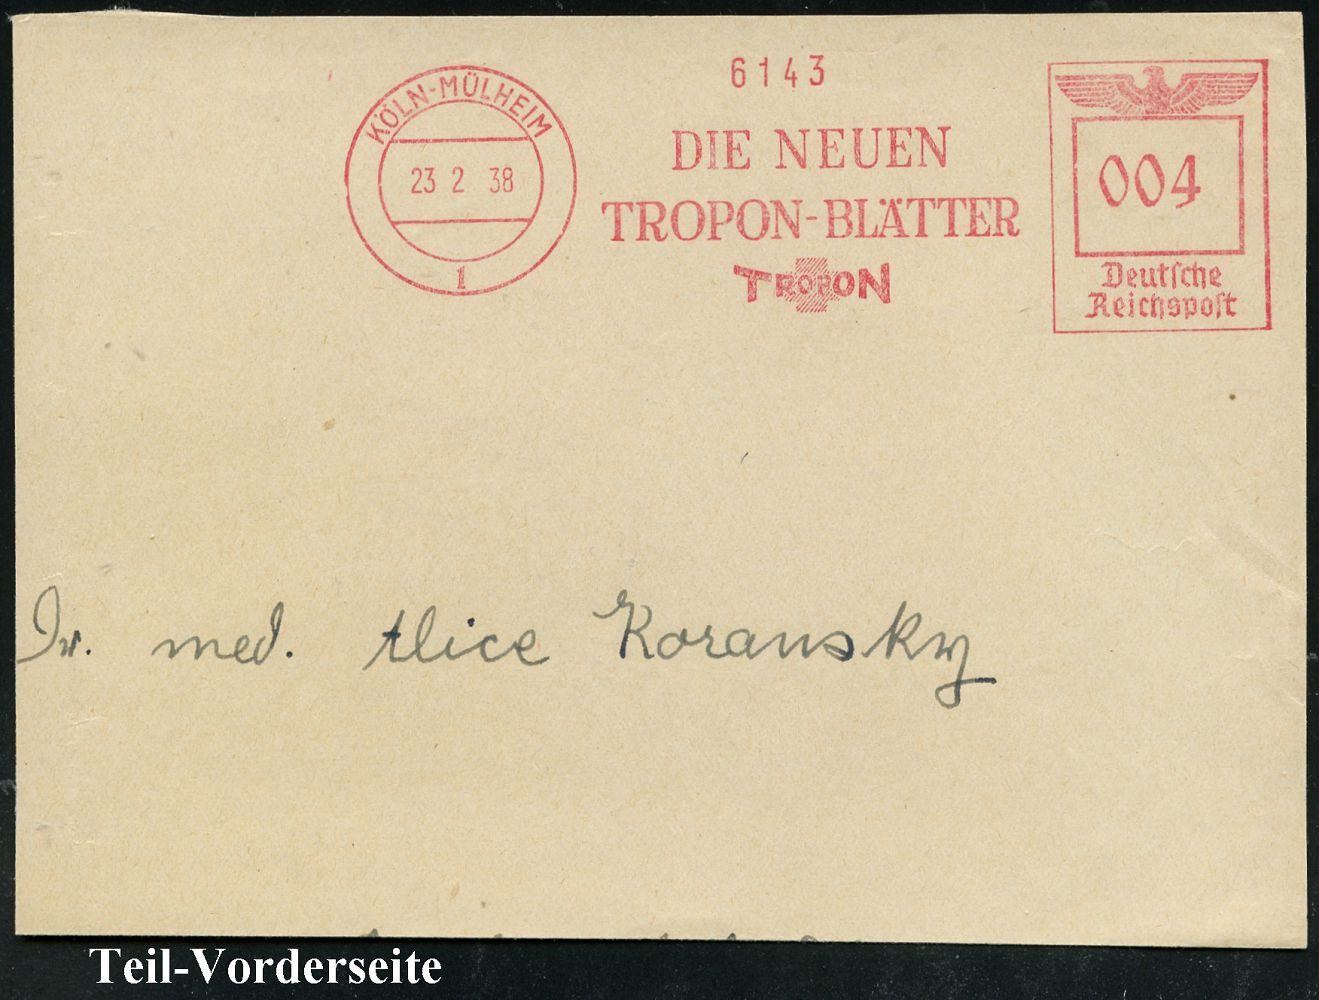 KÖLN-MÜLHEIM
23 2 38
1
6143
DIE NEUEN
TROPON-BLÄTTER
TROPON
004
Deutsche
Reichspost
Dr. med. Alice Koransky
Teil-Vorderseite